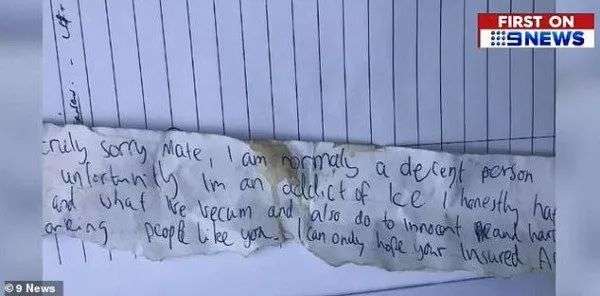 FIRST ON
9NEWS
truly sorry Mate, I am normaly a decent person
unfortunitly Im an addict of Ice I honestly ha
and what Ive vecum and also do to innocent and har
orking people like you. I can only hope your Insured. A
© 9 News